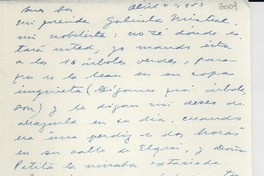 Buenos Aires Abril 4-1953 8009
Mi querida Gabriela Mistral
mi nobilista: no sé dónde es-
tará usted, yo mando esta
a los 10 árboles verdes, para
que se la lean en su copa
inquieta (Díganme qué árboles
son) y le digan mi deseo de
abrazarla en su día, cuando
una perdiz de dos horas
en su valle de Elqui, y Doña
Petita la miraba extasiada